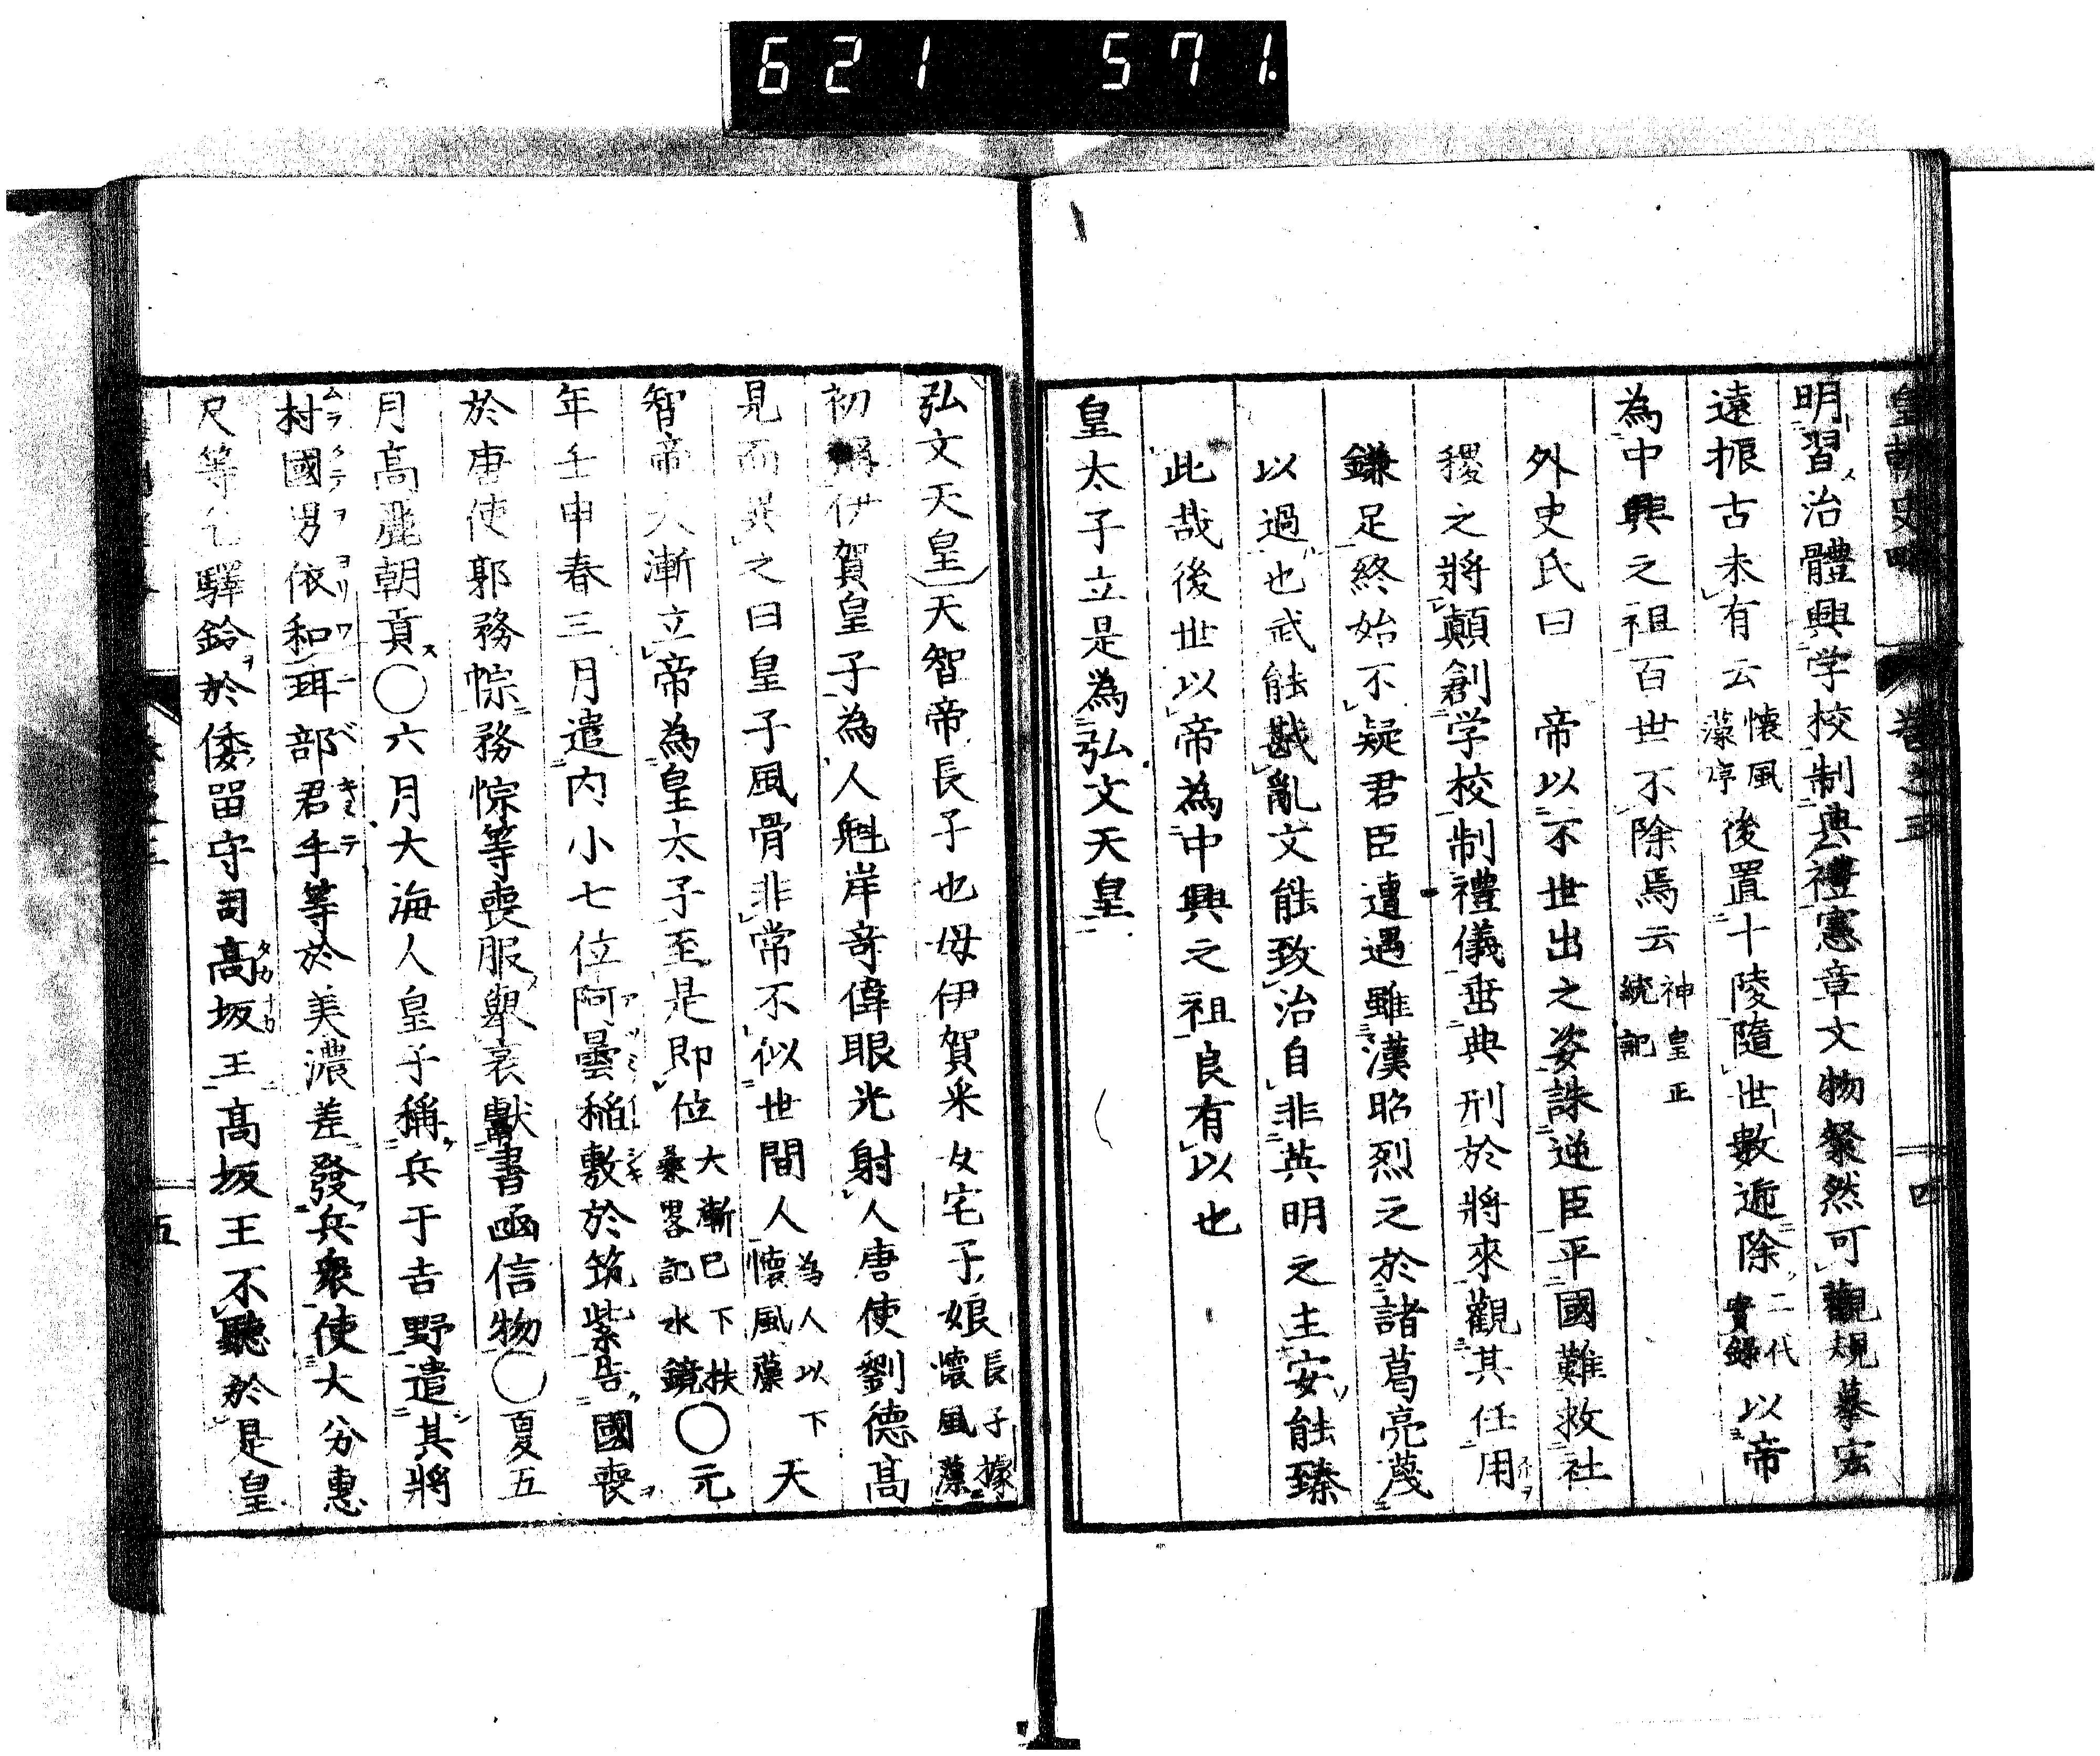 621 571
皇朝史略 卷之三 四
明習治體興学校制典禮憲章文物粲然可觀規摹宏
遠振古未有云懷風藻序後置十陵隨世數遞除二代實錄以帝
為中興之祖百世不除焉云神皇正統記
外史氏曰 帝以不世出之姿誅逆臣平國難救社
稷之將顛創学校制禮儀垂典刑於將來觀其任用
鎌足終始不疑君臣遭遇雖漢昭烈之於諸葛亮蔑
以過也武能戡亂文能致治自非英明之主安能臻
此哉後世以帝為中興之祖良有以也
皇太子立是為弘文天皇
弘文天皇天智帝長子也母伊賀采女宅子娘長子據懷風藻
初稱伊賀皇子為人魁岸奇偉眼光射人唐使劉德高
見而異之曰皇子風骨非常不似世間人為人以下懷風藻天
智帝大漸立帝為皇太子至是即位大漸已下扶桑畧記水鏡〇元
年壬申春三月遣内小七位阿曇稲敷於筑紫告國喪
於唐使郭務悰務悰等喪服舉哀獻書函信物〇夏五
月高麗朝貢〇六月大海人皇子稱兵于吉野遣其將
村國男依和珥部君手等於美濃差發兵衆使大分惠
尺等乞驛鈴於倭留守司高坂王高坂王不聽於是皇
五